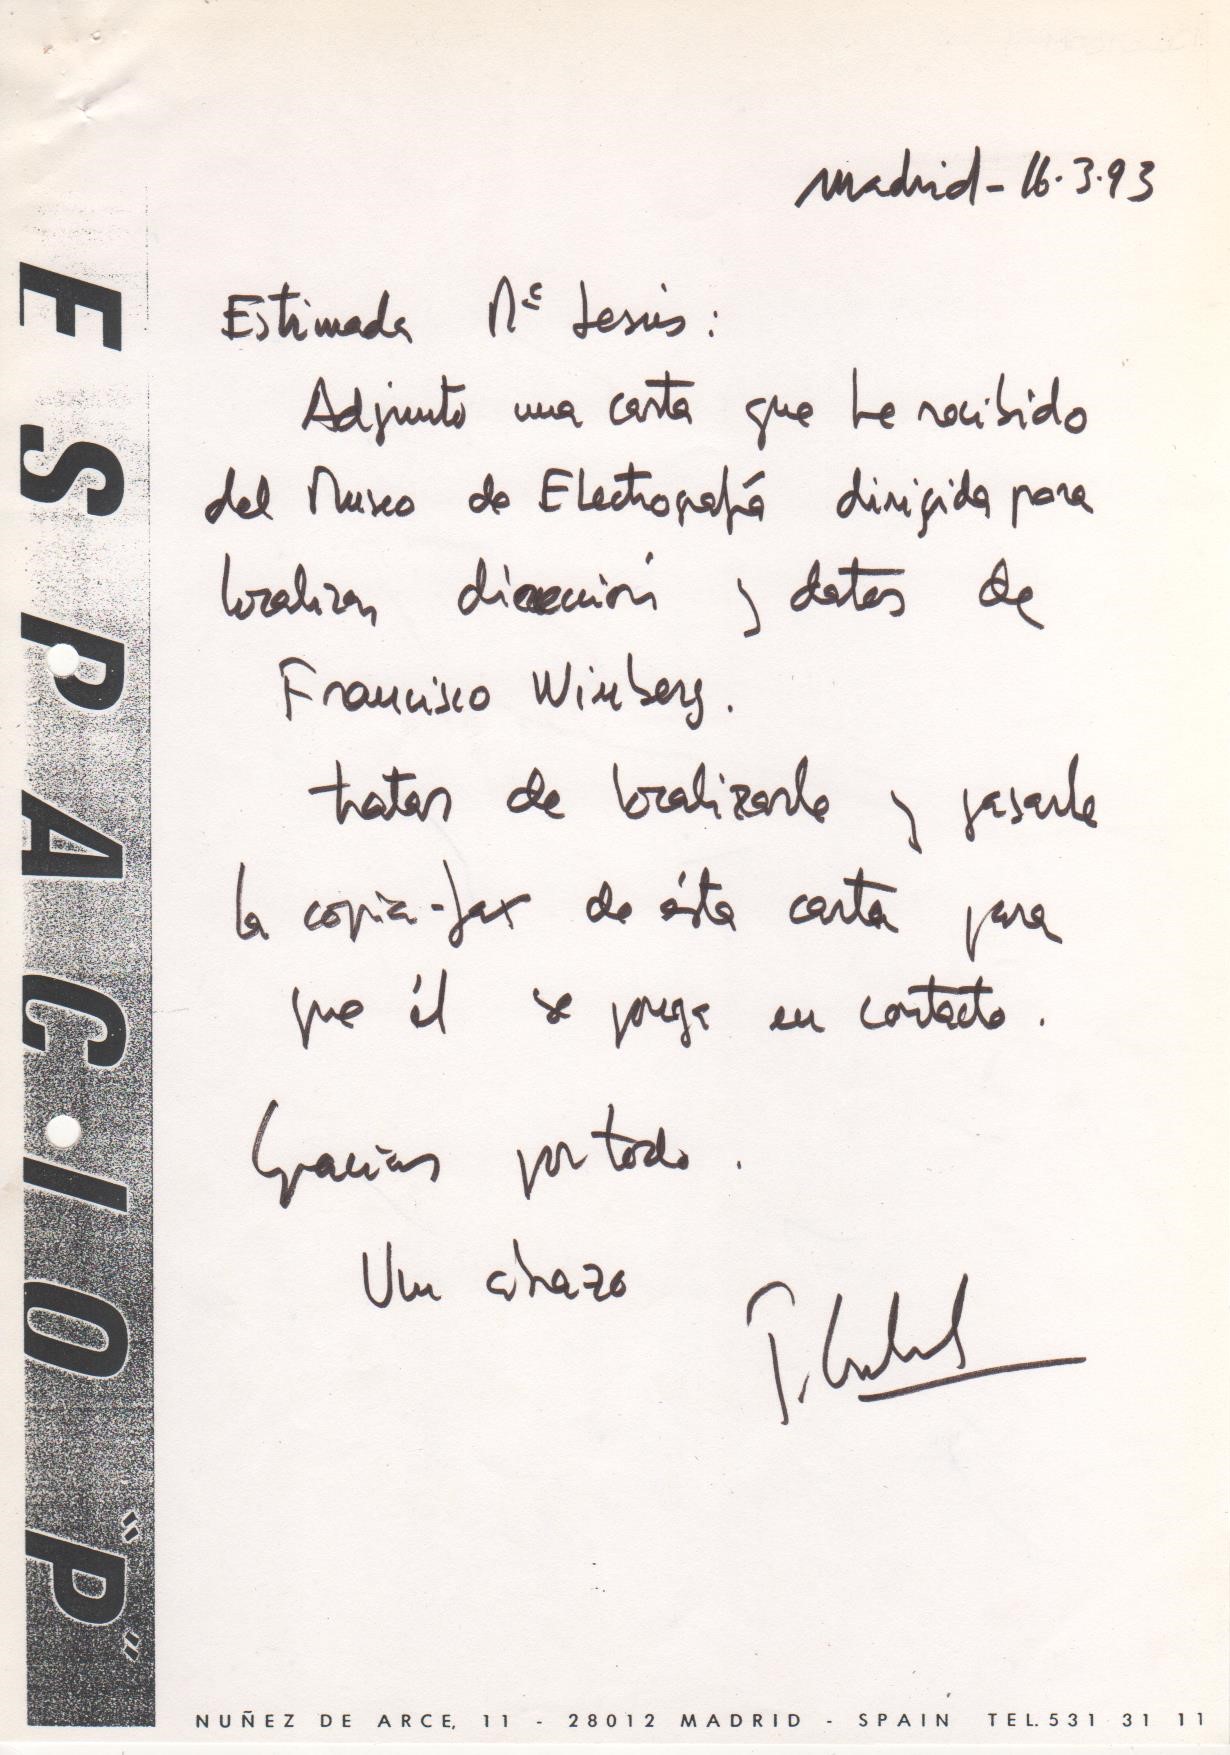 ESPACIO "P"
Madrid - 16.3.93
Estimada Mª Jesús:
Adjunto una carta que he recibido
del Museo de Electrografía dirigida para
localizar dirección y datos de
Francisco Wimberg.
tratar de localizarle y pasarle
la copia-fax de ésta carta para
que él se ponga en contacto.
Gracias por todo.
Un abrazo
NUÑEZ DE ARCE, 11 - 28012 MADRID - SPAIN TEL. 531 31 11